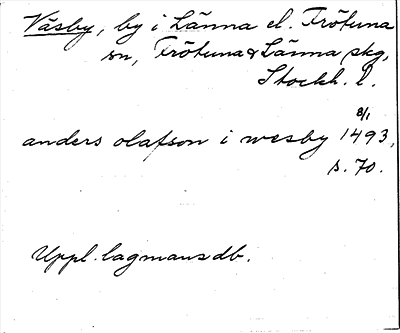 Väsby, by i Länna el. Frötuna
sn, Frötuna & Länna skg,
Stockh. l.
8/1
anders olafson i wesby 1493,
s. 70.
Uppl. lagmansdb.